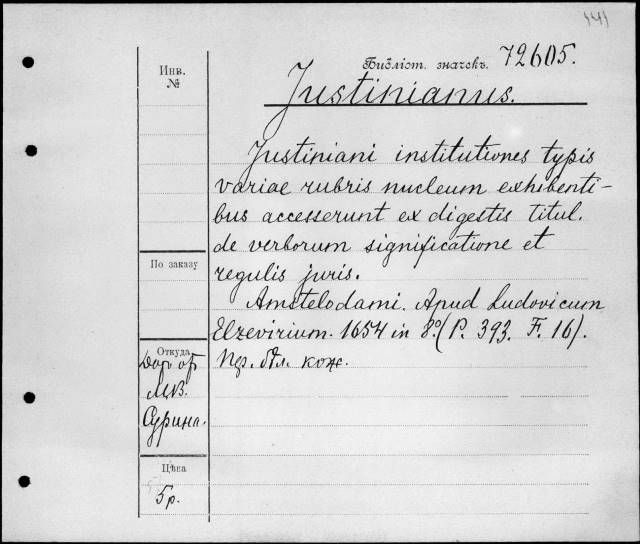 141
Библіот. значекъ. 72605.
Justinianus.
Инв.
№
Justiniani institutiones typis
variae rubris nucleum exhibenti-
bus accesserunt ex digestis titul.
de verborum significatione et
regulis juris.
Amstelodami. Apud Ludovicum
Elzevirium. 1654 in 8º. (P. 393. F. 16).
Пер. бѣл. кож.
По заказу
Откуда
Дар от
М.В.
Сурина.
Цѣна
5р.